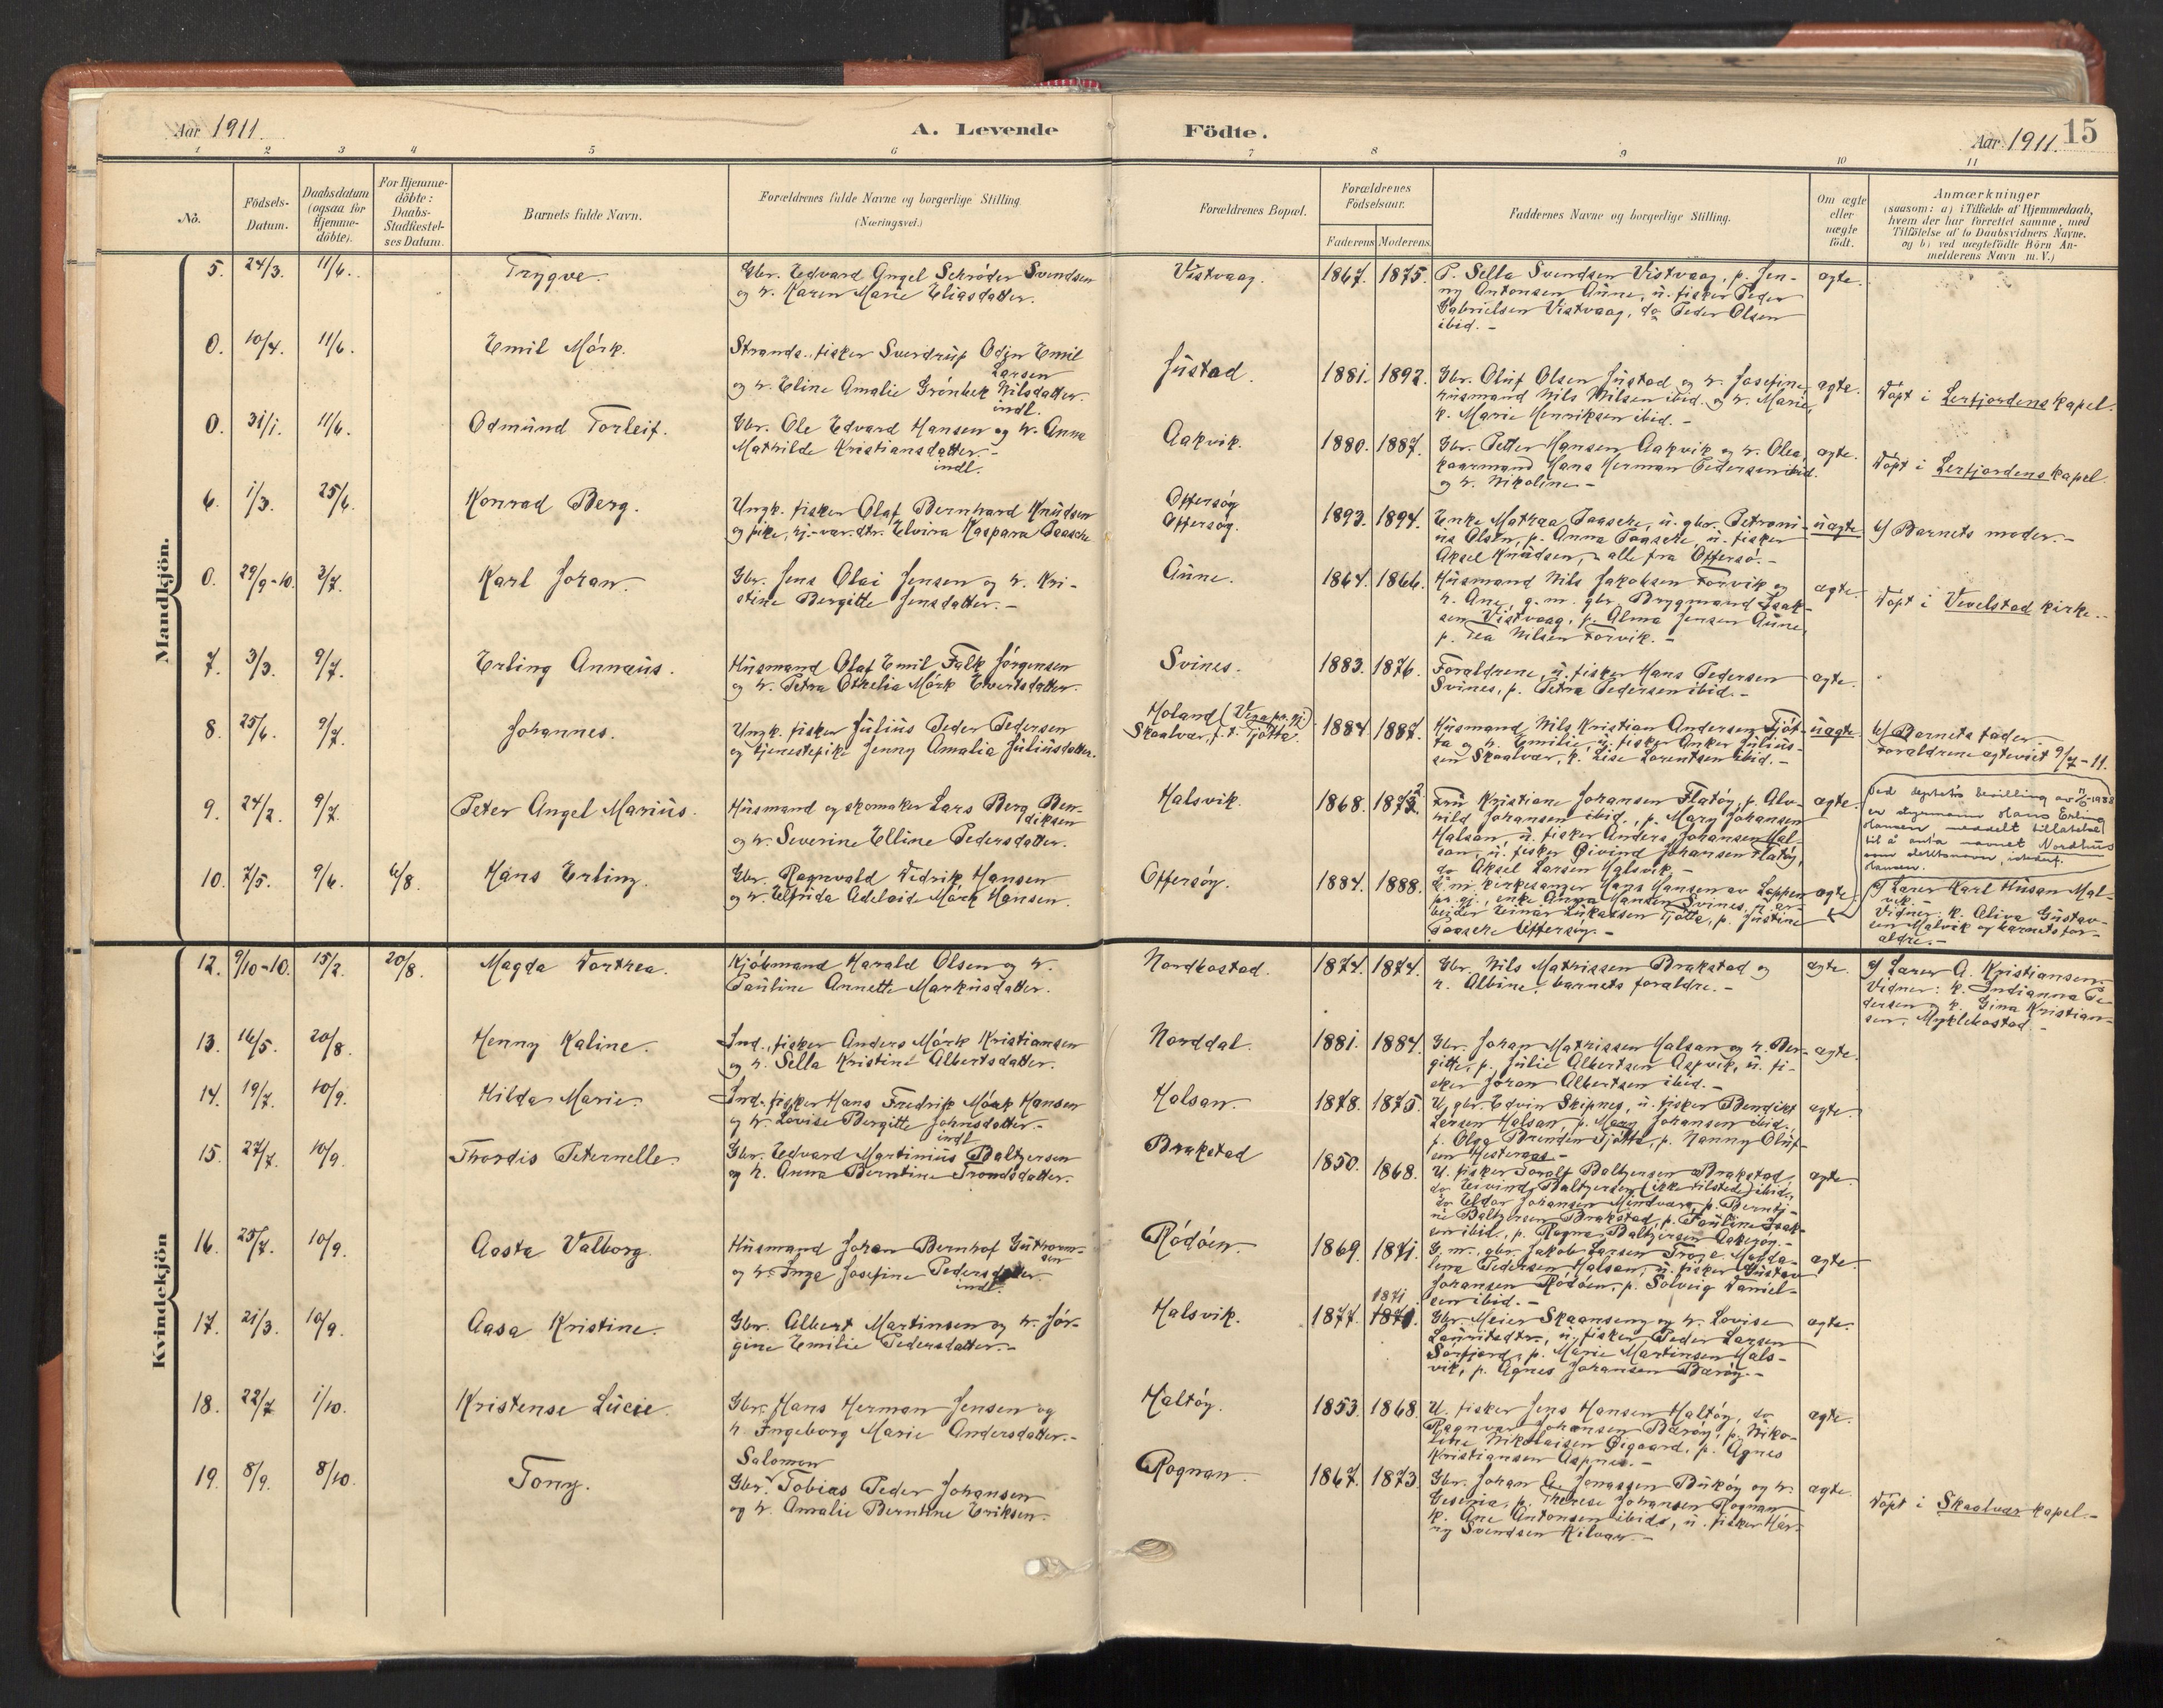 Aar 1911.
A. Levende
Födte.
Aar 1911.
15
1 2 3 4 5 6 7 8 9 10 11
No.
Födsels-
Datum.
Daabsdatum
(ogsaa for
Hjemme-
döbte).
For Hjemme-
döbte:
Daabs-
Stadfæstel-
ses Datum.
Barnets fulde Navn.
Forældrenes fulde Navne og borgerlige Stilling
(Næringsvei.)
Forældrenes Bopæl.
Forældrenes
Födselsaar.
Faderens Moderens
Faddernes Navne og borgerlige Stilling.
Om ægte
eller
uægte
födt.
Anmærkninger
(saasom: a) i Tilfælde af Hjemmedaab,
hvem der har forrettet samme, med
Tilföielse af to Daabsvidners Navne.
og b) ved uægtefödte Börn An-
melderens Navn m. V.)
Mandkjön.
5. 24/3. 11/6. Trygve.
Gbr. Edvard Angel Schrøder Svendsen
og h. Karen Marie Eliasdatter.
Vistvaag. 1867. 1875.
P. Sella Svendsen Vistvaag, p. Jen-
ny Antonsen Aune, u. fisker Peder
Gabrielsen Vistvaag, do Peder Olsen
ibid. -
ægte.
0. 10/4. 11/6. Emil Mórk.
Strands., fisker Sverdrup Odin Emil
Larsen
og h. Eline Amalie Grónbek Nilsdatter.
indl.
Justad. 1881. 1892.
Gbr. Oluf Olsen Justad og h. Josefine,
husmand Nils Nilsen ibid. og h. Marie,
k. Marie Henriksen ibid. -
ægte. Döpt i Lerfjordens kapel.
0. 31/1. 11/6. Odmund Torleif.
Gbr. Ole Edvard Hansen og h. Anna
Mathilde Kristiansdatter. -
indl.
Aakvik. 1880. 1887.
Gbr. Petter Hansen Aakvik og h. Olea,
kaarmand Hans Herman Pedersen ibid.
og h. Nikoline -
ægte. Döpt i Lerfjordens kapel.
6. 1/3. 25/6. Konrad Berg.
Ungk. fisker Olaf Bernhard Knudsen
og pike, hj.-vær. dtr. Elvira Kaspara Paasche
Offersóy
Offersóy. 1893. 1894.
Enke Mathea Paasche, u. gbr. Petroni-
us Olsen, p. Anna Paasche, u. fisker
Aksel Knudsen, - alle fra Offersó. -
uægte b) Barnets moder. -
0. 29/9-10. 2/7. Karl Johan.
Gbr. Jens Olai Jensen og h. Kri-
stine Bergitte Jensdatter. -
Aune. 1864. 1866.
Husmand Nils Jakobsen Forvik og
h. Ane, g. m. gbr. Brygmand Isak-
sen Vistvaag, p. Alma Jensen Aune,
p. Tea Nilsen Forvik. -
ægte. Döpt i Vevelstad kirke. -
7. 3/3. 9/7. Erling Annæus.
Husmand Olaf Emil Falk Jórgensen
og h. Petra Othelia Mórk Evertsdatter.
Svines. 1883. 1876.
Foraldrene, u. fisker Hans Pedersen
Svines, p. Petra Pedersen ibid. -
ægte.
8. 25/6. 9/7. Johannes.
Ungk. fisker Julius Peder Pedersen
og tjenestepike Jenny Amalia Juliusdatter.
Holand (Vega pr.gj.)
Skaalvær, f. t. Tjótta. 1884. 1887.
Husmand Nils Kristian Andersen Tjót-
ta og h. Emilie, u. fisker Anker Julius-
sen Skaalvær, k. Lise Lorentsen ibid. -
uægte b) Barnets fader.
Foraldrene ægteviet 9/7-11.
9. 24/2. 9/7. Peter Angel Marius.
Husmand og skomaker Lars Berg Ben-
diksen
og h. Severine Elline Pedersdatter.
Halsvik. 1868. 1872
Fru Kristiane Johansen Flatóy, p. Alv-
hild Johansen ibid., p. Mary Johansen
Halsan, u. fisker Anders Johansen Hal-
san, u. fisker Øivind Johansen Flatóy,
do Aksel Larsen Halsvik. -
ægte.
Ved deptets bevilling av 11/6-1938
er styrmann Hans Erling
Hansen meddelt tillatelse
til å anta navnet Nordhus
som slektsnavn, istedenf.
Hansen.
10. 7/5. 9/6. 6/8. Hans Erling.
Gbr. Ragnvald Didrik Hansen
og h. Elfrida Adelaid Mórk Hansen.
Offersóy. 1884. 1888.
E. m. kirkesanger Hans Hansen av Leppen
pr.gj., enke Anna Hansen Svines, u. ar-
beider Einar Lukassen Tjótta, p. Justine
Paasche Offersóy. -
ægte
a) Lærer Karl Husan Mal-
vik. -
Vidner: k. Oliva Gustav-
sen Malvik og barnets for-
ældre. -
Kvindekjön
12. 9/10-10. 15/2. 20/8. Magda Dorthea.
Kjóbmand Harald Olsen og h.
Pauline Annette Markusdatter.
Nordbostad. 1874. 1874.
Gbr. Nils Mathissen Brakstad og
h. Albine, barnets foraldre. -
ægte. a) Lærer A. Kristiansen.
Vidner: k. Indianna Pe-
dersen og k. Gina Kristian-
sen, Myklebostad. -
13. 16/5. 20/8. Henny Kaline.
Ind., fisker Anders Mórk Kristiansen
og h. Sella Kristine Albertsdatter.
Norddal. 1881. 1884.
Gbr. Johan Mathissen Halsan og h. Ber-
gitte, p. Julie Albertsen Aspvik, u. fi-
sker Johan Albertsen ibid. -
ægte.
14. 19/7. 10/9. Hilda Marie.
Ind. fisker Hans Fredrik Mórk Hansen
og h. Lovise Bergitte Johnsdatter. -
indl
Holsan. 1878. 1875.
U. gbr. Edvin Skipnes, u. fisker Bendikt
Larsen Halsan, p. Mary Johansen ibid.,
f. Olga Brenden Tjótta, p. Nanny Oluf-
sen Hesteraas. -
ægte.
15. 27/7. 10/9. Thordis Peternelle.
Gbr. Edvard Martinius Baltzersen
og h. Anna Berntine Trondsdatter.
Brakstad 1850. 1868.
U. fisker Toralf Baltzersen Brakstad,
do Eivind Baltzersen (ikke tilstede) ibid.,
do Eldor Johansen Mindvær, p. Bernti-
ne Baltzersen Brakstad, p. Pauline Isak-
sen ibid., p. Ragna Baltzersen
ægte.
16. 25/7. 10/9. Aasta Valborg.
Husmand Johan Bernhof Guttorm-
sen
og h. Inga Josefine Pedersdatter
indl.
Ródóen. 1869. 1871.
G. m. gbr. Jakob Larsen Troje, Magda-
lena Pedersen Halsan, u. fisker Gustav
Johansen Ródóen, p. Solveig Daniel-
sen ibid. -
ægte.
17. 21/3. 10/9. Aasa Kristine.
Gbr. Albert Martinsen og h. Jór-
gine Emilie Pedersdatter. -
Halsvik. 1877. 1871
Gbr. Meier Skaanseng og h. Lovise
Lauritsdtr., u. fisker Peder Larsen
Sórfjord, p. Marie Martinsen Hals-
vik, p. Agnes Johansen Bæróy. -
ægte.
18. 22/7. 1/10. Kristense Lucie.
Gbr. Hans Herman Jensen og
h. Ingeborg Marie Andersdatter. -
Haltóy. 1853. 1868.
U. fisker Jens Hansen Haltóy, do
Ragnvar Johansen Bæróy, p. Niko-
line Nikolaisen Øigaard, p. Agnes
Kristiansen Aspnes. -
ægte.
19. 8/9. 8/10. Tony.
Salomon
Gbr. Tobias Peder Johansen
og h. Amalie Berntine Eriksen. -
Rognan. 1867. 1873.
Gbr. Johan A. Jonassen Bukóy og h.
Gesenia, p. Therese Johansen Rognan
k. Ane Antonsen ibid., u. fisker Har-
ry Svendsen Kilvær. -
ægte. Döpt i Skaalvær kapel. -